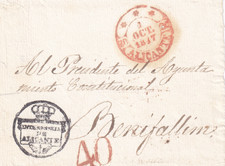 2
OCT.
1847
ALICANTE
Al Presidente del Ayunta
miento Constitucional
DE
ALICANTE
Benifallim
40